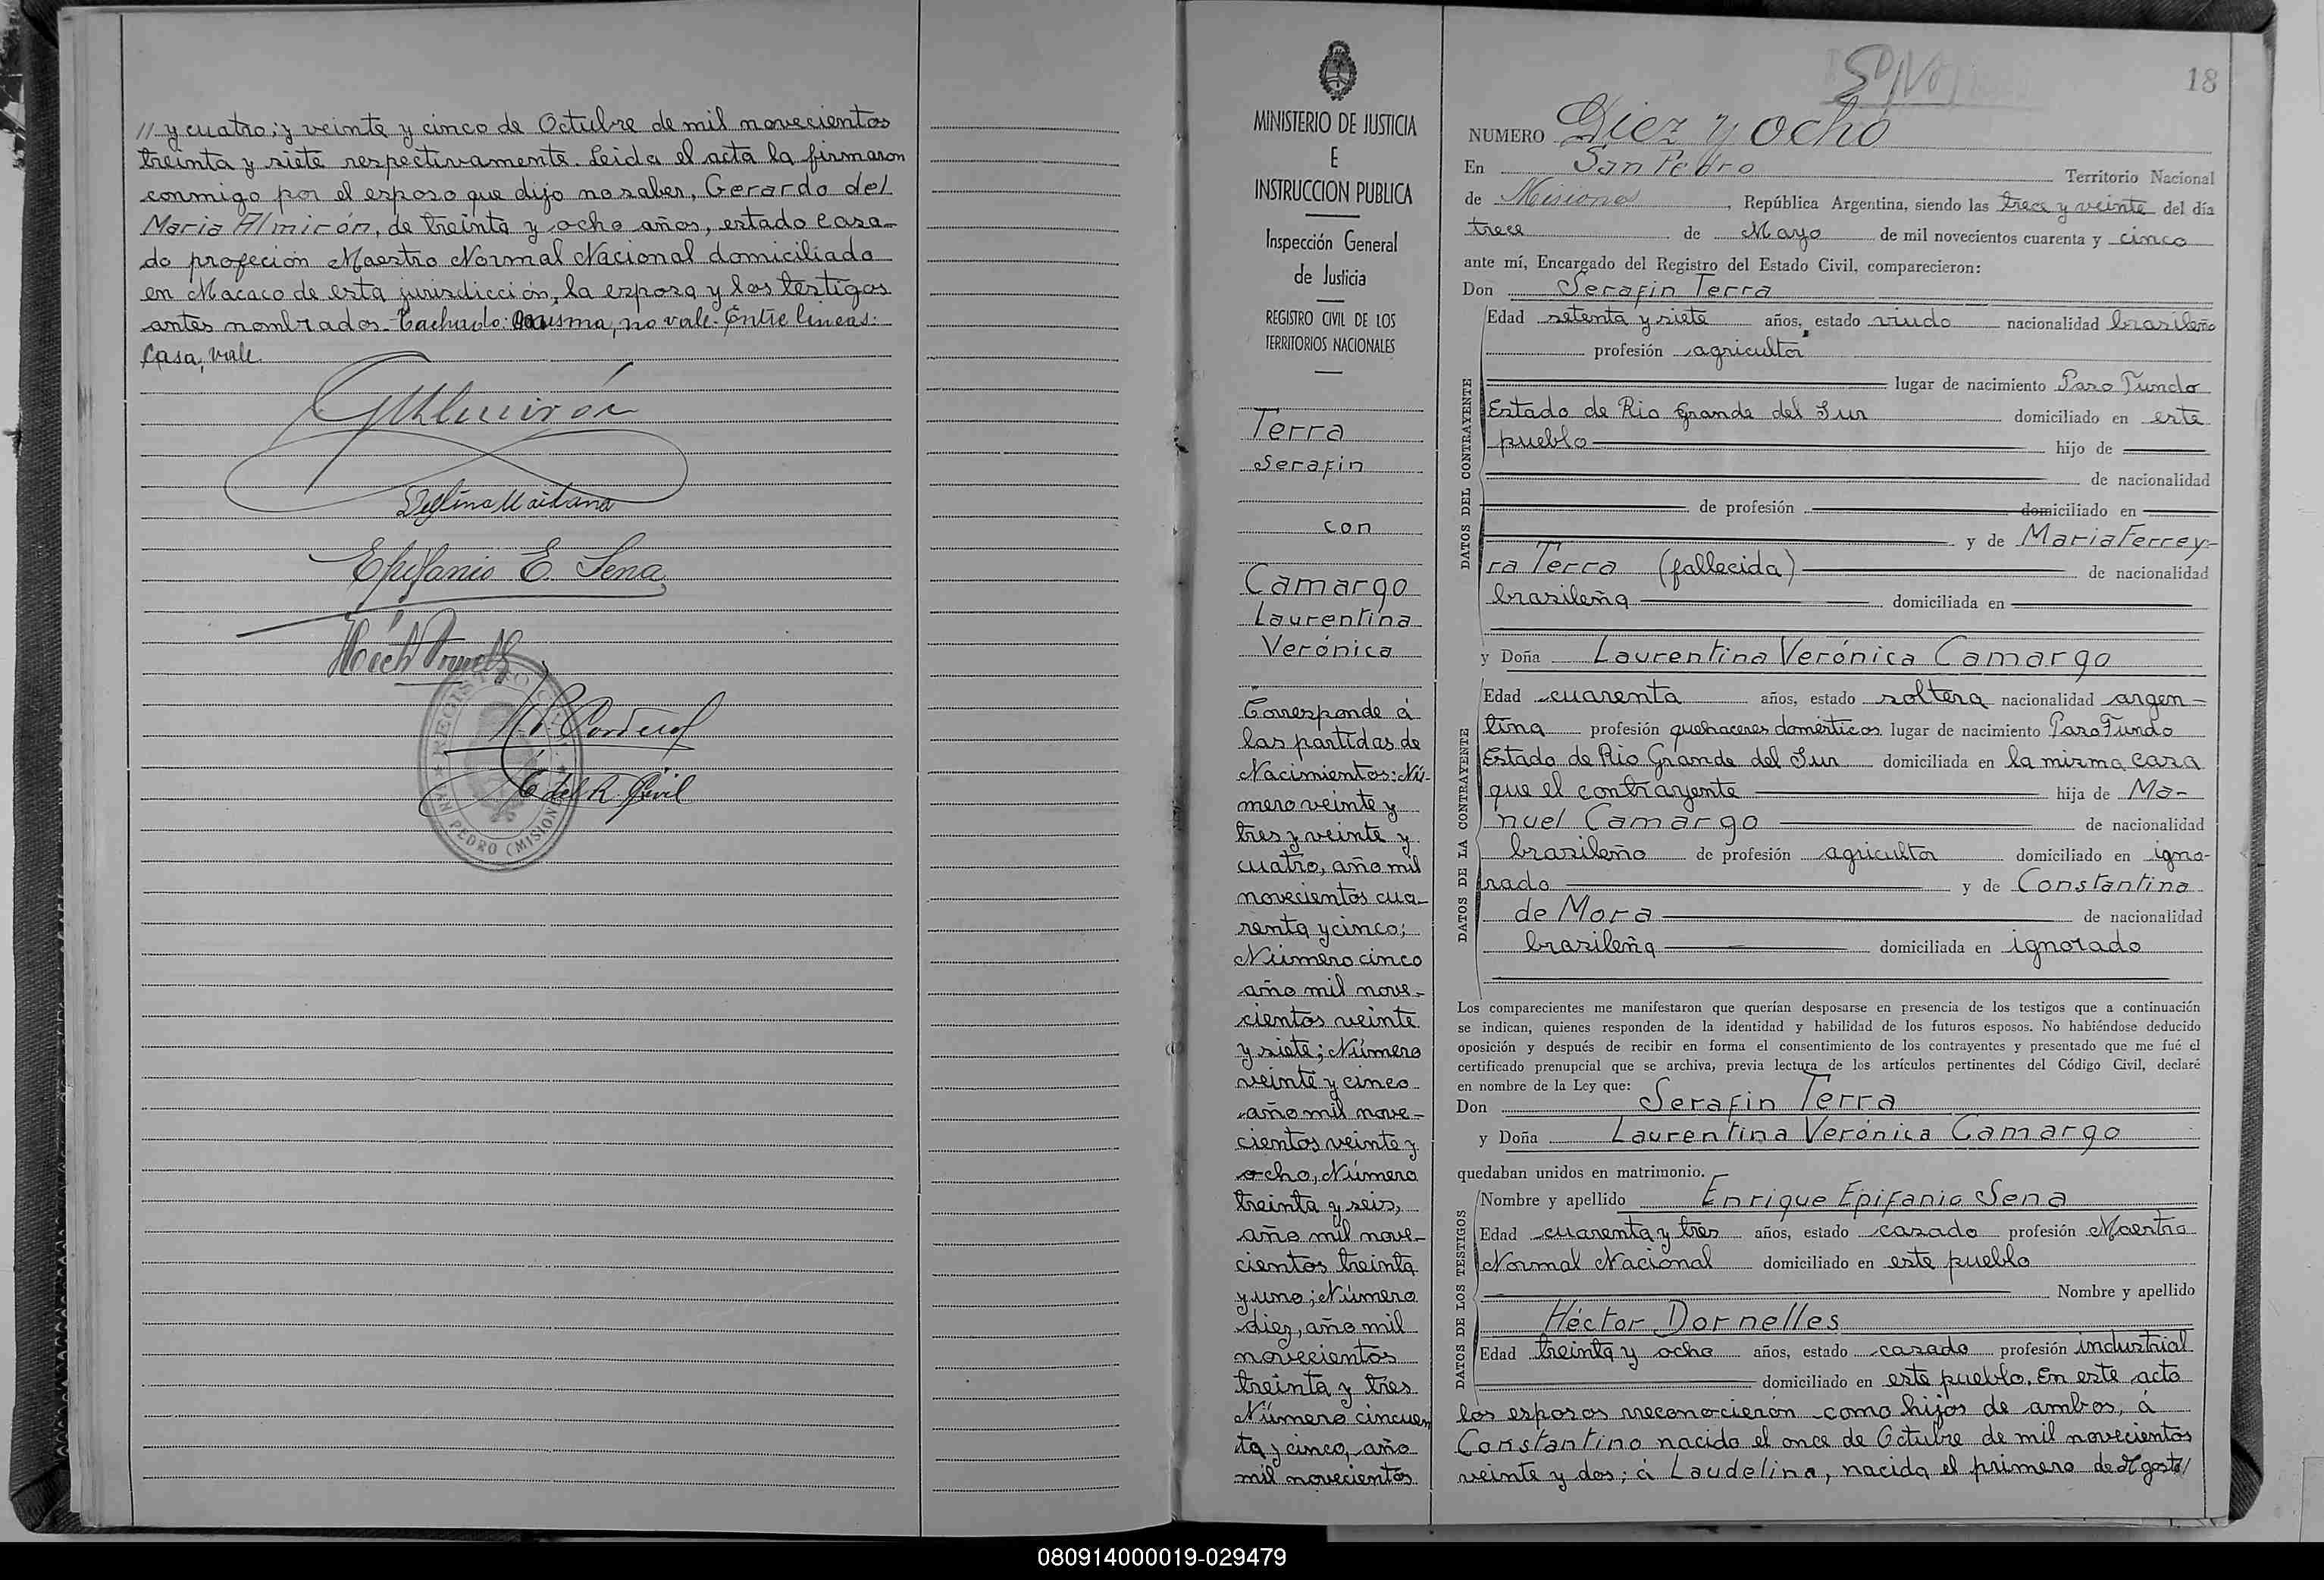 // y cuatro; y veinte y cinco de Octubre de mil novecientos
treinta y siete respectivamente. Leida el acta la firmaron
conmigo por el esposo que dijo no saber, Gerardo del
Maria Almirón, de treinta y ocho años, estado casa-
do profeción Maestro Normal Nacional domiciliado
en Macaco de esta jurisdicción, la esposa y los testigos
antes nombrados. Tachado: misma, no vale. Entre lineas:
Casa, vale.
GMAlmirón
Epifanio E. Sena
E. del R. Civil
REGISTRO CIVIL
PEDRO (MISION
MINISTERIO DE JUSTICIA
E
INSTRUCCION PUBLICA
Inspección General
de Justicia
REGISTRO CIVIL DE LOS
TERRITORIOS NACIONALES
Terra
Serafin
con
Camargo
Laurentina
Verónica
Corresponde á
las partidas de
Nacimientos: Nú-
mero veinte y
tres y veinte y
cuatro, año mil
novecientos cua-
renta y cinco;
Número cinco
año mil nove-
cientos veinte
y siete; Número
veinte y cinco
año mil nove-
cientos veinte y
ocho, Número
treinta y seis,
año mil nove-
cientos treinta
y uno; Número
diez, año mil
novecientos
treinta y tres
Número cincuen
ta y cinco, año
mil novecientos
18
NUMERO Diez y ocho
En San Pedro Territorio Nacional
de Misiones, República Argentina, siendo las trece y veinte del día
trece de Mayo de mil novecientos cuarenta y cinco
ante mí, Encargado del Registro del Estado Civil, comparecieron:
Don Serafin Terra
DATOS DEL CONTRAYENTE
Edad setenta y siete años, estado viudo nacionalidad brasileño
profesión agricultor
lugar de nacimiento Paso Fundo
Estado de Rio Grande del Sur domiciliado en este
pueblo hijo de
de nacionalidad
de profesión domiciliado en
y de Maria Ferrey-
ra Terra (fallecida) de nacionalidad
brasileña domiciliada en
y Doña Laurentina Verónica Camargo
DATOS DE LA CONTRAYENTE
Edad cuarenta años, estado soltera nacionalidad argen-
tina profesión quehaceres domésticos lugar de nacimiento Paso Fundo
Estado de Rio Grande del Sur domiciliada en la misma casa
que el contrayente hija de Ma-
nuel Camargo de nacionalidad
brasileño de profesión agricultor domiciliado en igno-
rado y de Constantina
de Mora de nacionalidad
brasileña domiciliada en ignorado
Los comparecientes me manifestaron que querían desposarse en presencia de los testigos que a continuación
se indican, quienes responden de la identidad y habilidad de los futuros esposos. No habiéndose deducido
oposición y después de recibir en forma el consentimiento de los contrayentes y presentado que me fué el
certificado prenupcial que se archiva, previa lectura de los artículos pertinentes del Código Civil, declaré
en nombre de la Ley que:
Don Serafin Terra
y Doña Laurentina Verónica Camargo
quedaban unidos en matrimonio.
DATOS DE LOS TESTIGOS
Nombre y apellido Enrique Epifanio Sena
Edad cuarenta y tres años, estado casado profesión Maestro
Normal Nacional domiciliado en este pueblo
Nombre y apellido
Héctor Dornelles
Edad treinta y ocho años, estado casado profesión industrial
domiciliado en este pueblo. En este acto
los esposos reconocieron como hijos de ambos, á
Constantino nacido el once de Octubre de mil novecientos
veinte y dos; á Laudelina, nacida el primero de Agosto/
080914000019-029479